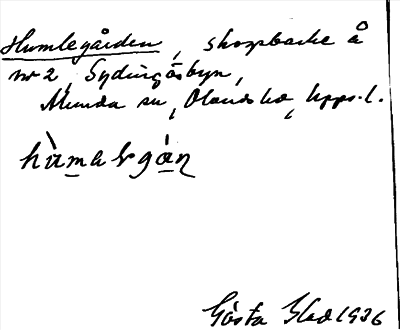 Humlegården, skogsbacke å
nr 2, Sydingsbyn,
Munda sn, Olands hd, Upps. l.
hùmɐlgán
Gösta Sted 1936